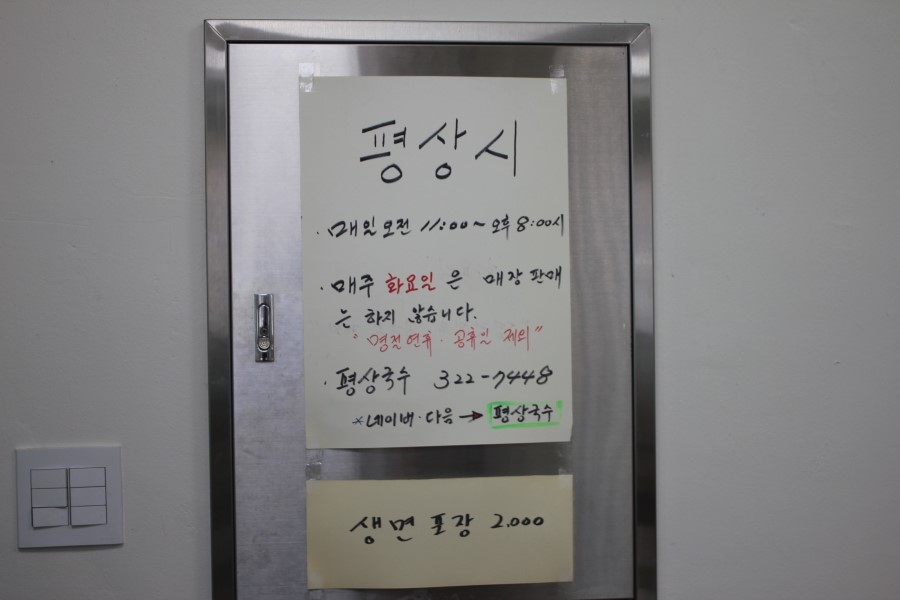 평상시
· 매일 오전 11:00~오후 8:00시
· 매주 화요일은 매장 판매
는 하지 않습니다.
"명절연휴·공휴일 제외"
· 평상국수 322-7448
*네이버·다음→ 평상국수
생면 포장 2.000